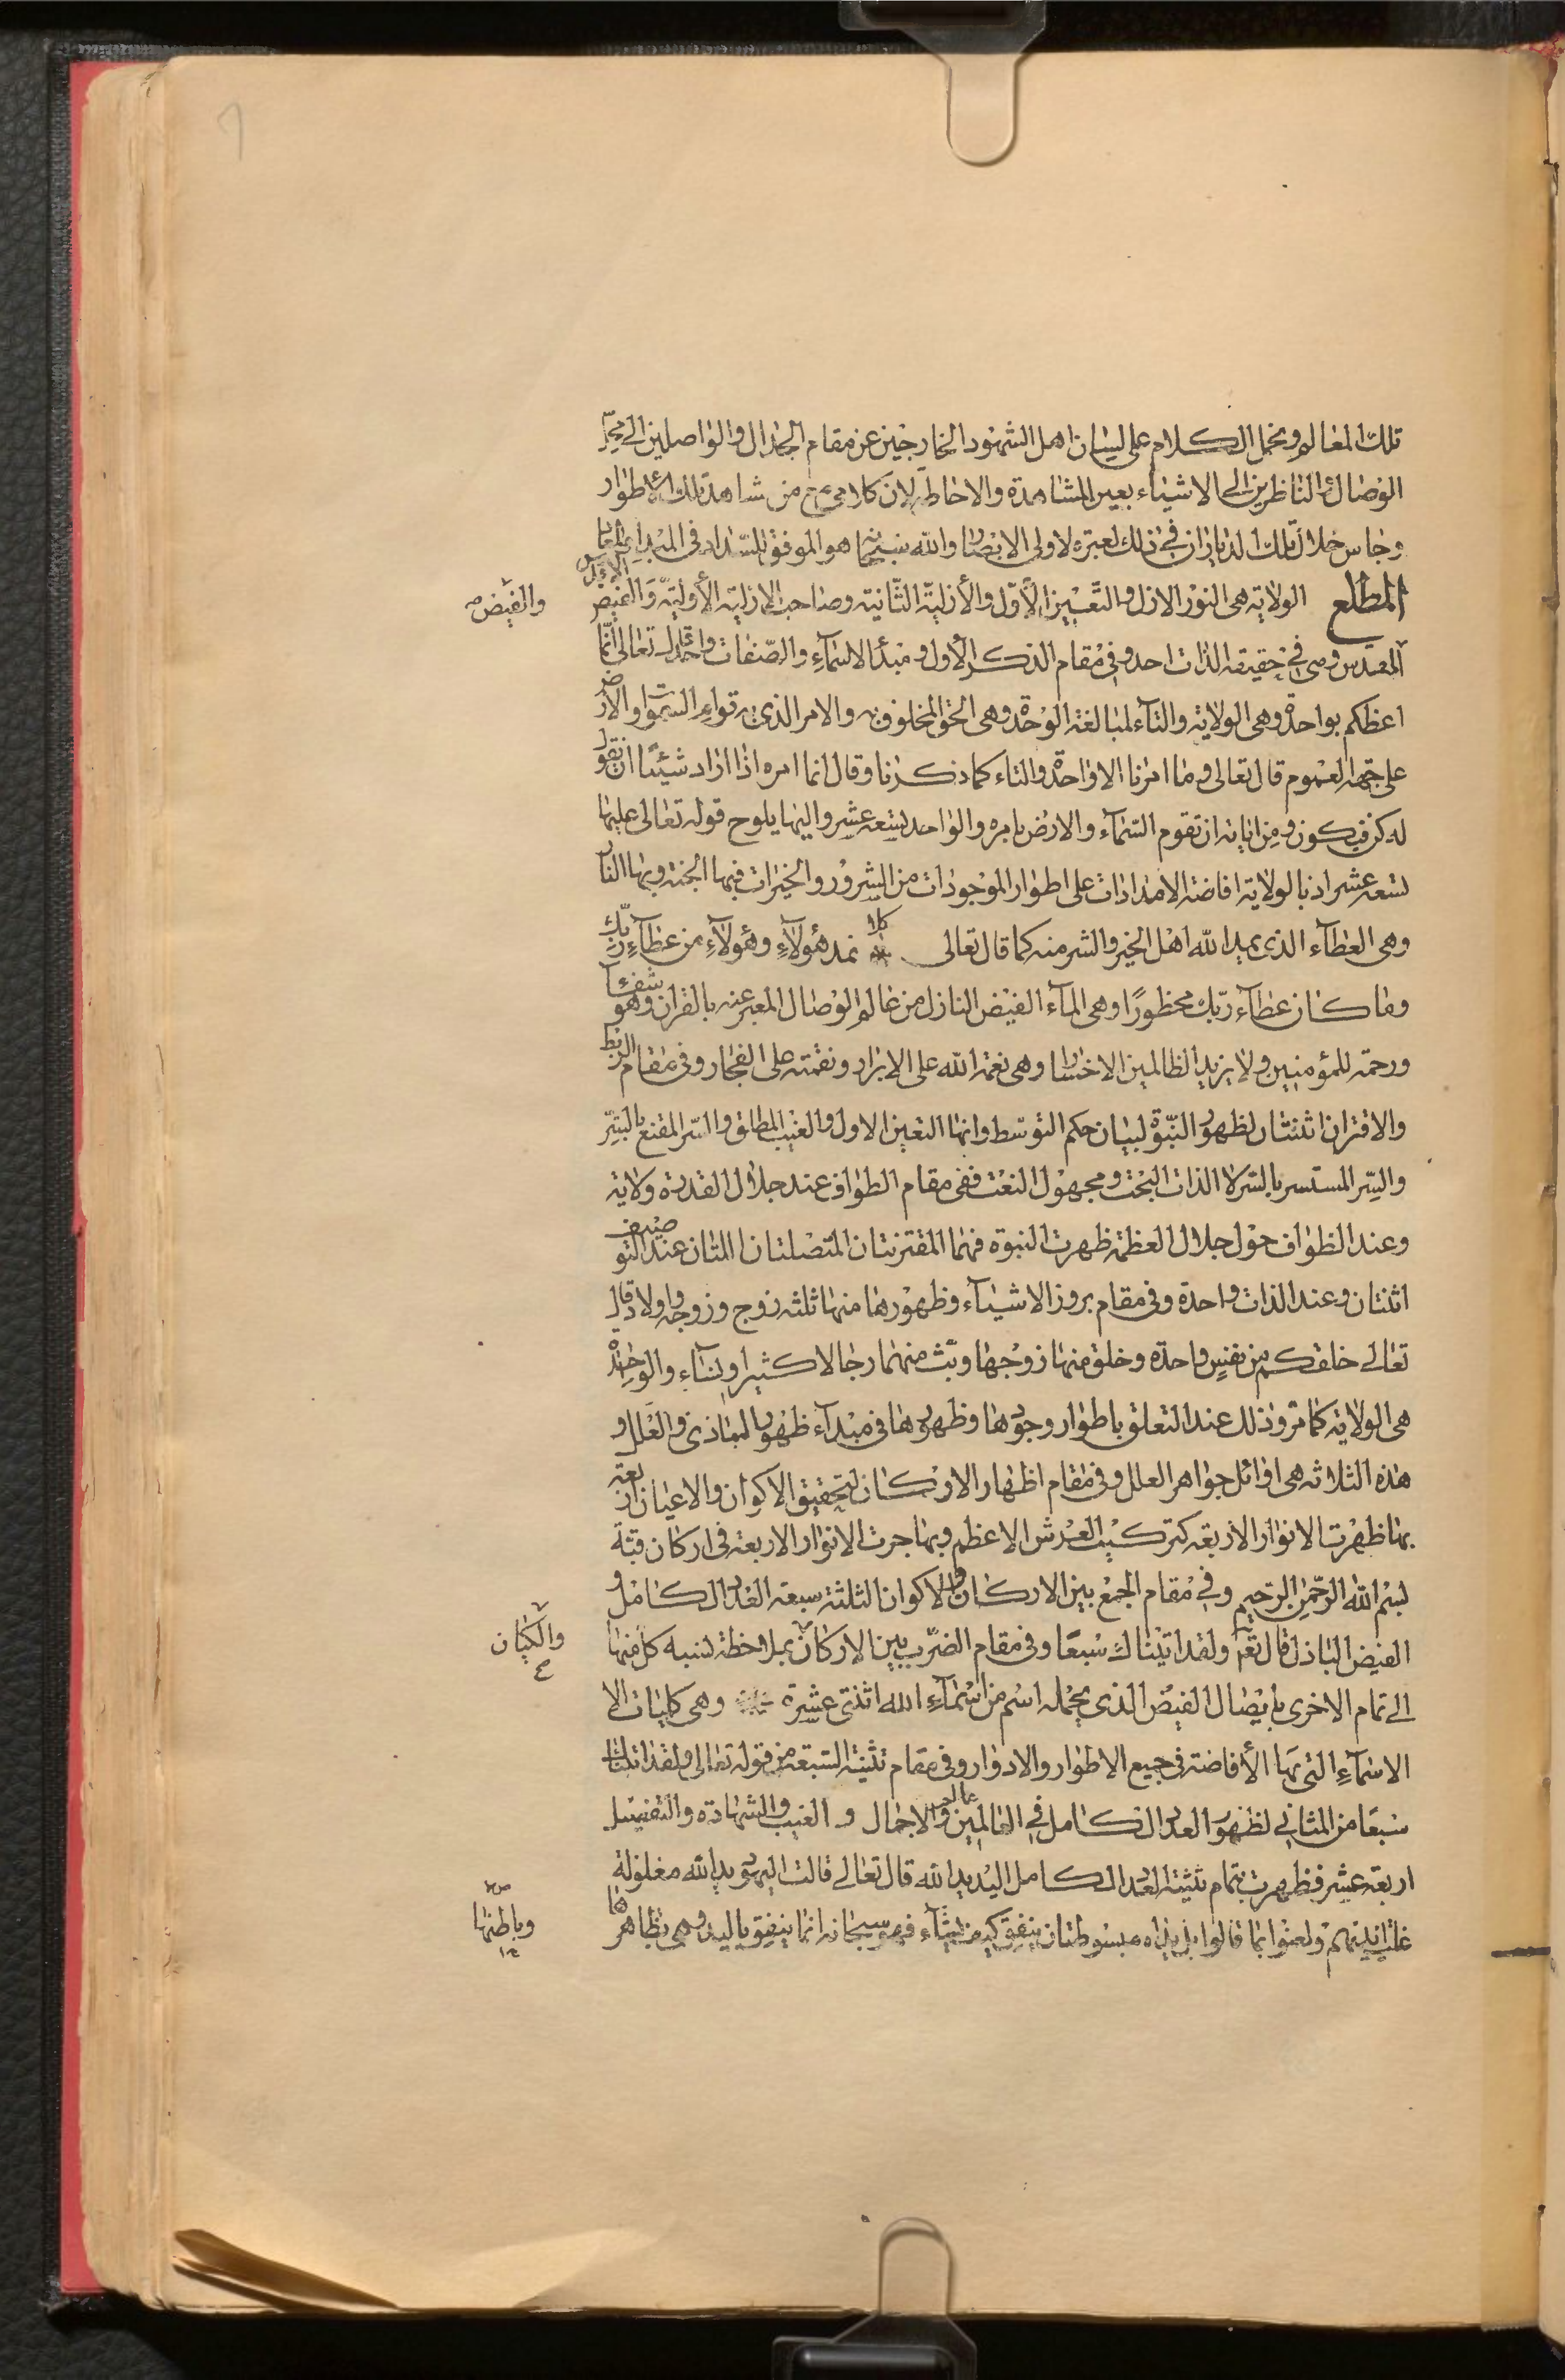 تلك المعالم ومجمل الكلام على لسان اهل الشهود الخارجين عن مقام الجدال والواصلين الى
الوصال والناظرين الى الاشياء بعين المشاهدة والاحاطة لان كلامي مع من شاهد تلك الاطوار
وجاس خلال تلك الديار ان في ذلك لعبرة لاولى الابصار والله سبحانه هو الموفق للسداد في المبدا والمعاد
المطلع الولاية هى النور الازل والتعين الاول والأزلية الثانية وصاحب الازلية الأولية والفيض الاقدس
والفيض صح
المقدس وهى في حقيقة الذات احد وفى مقام الذكر الأول ومبدأ الاسمآء والصفات واحد قال تعالى انما
اعظكم بواحدة وهى الولاية والتآء لمبالغة الوحدة وهى الحق المخلوق به والامر الذى به قوام السموات والارض
على جهة العموم قال تعالى وما امرنا الا واحدة والتاء كما ذكرنا وقال انما امره اذا اراد شيئا ان يقول
له كن فيكون ومن اياته ان تقوم السمآء والارض بامره والواحد تسعة عشر واليها يلوح قوله تعالى عليها
تسعة عشر اذ بالولاية افاضة الامدادات على اطوار الموجودات من الشرور والخيرات فبها الجنة وبها النار
وهى العطآء الذى يمد الله اهل الخير والشر منه كما قال تعالى كلا نمد هؤلآء وهؤلآء من عطآء ربك
وما كان عطآء ربك محظورًا وهى المآء الفيض النازل من عالم الوصال المعبر عنه بالقران وهو شفآء
ورحمة للمؤمنين ولا يزيد الظالمين الا خسارا وهى نعمة الله على الابرار ونقمته على الفجار وفى مقام الربط
والاقتران اثنتان لظهور النبوة لبيان حكم التوسط وانها التعين الاول والغيب المطلق والسر المقنع بالسر
والسر المستسر بالسر لا الذات البحت ومجهول النعت ففى مقام الطواف عند جلال القدرة ولاية
وعند الطواف حول جلال العظمة ظهرت النبوة فهما المقترنتان المتصلتان اللتان عند التوصيف
اثنتان وعند الذات واحدة وفى مقام بروز الاشيآء وظهورها منها ثلثة زوج وزوجة واولاد قال
تعالى خلقكم من نفس واحدة وخلق منها زوجها وبث منهما رجالا كثيرا ونسآء والواحدة
هى الولاية كما مر وذلك عند التعلق باطوار وجودها وظهورها فى مبدآء ظهور المبادى والعلل و
هذه الثلاثة هى اوائل جواهر العلل وفى مقام اظهار الاركان لتحقيق الاكوان والاعيان اربعة
بها ظهرت الانوار الاربعة كتركيب العرش الاعظم وبها جرت الانهار الاربعة فى اركان قبة
بسم الله الرحمن الرحيم وفي مقام الجمع بين الاركان والاكوان الثلثة سبعة العدد الكامل و
الفيض الباذل قال تعالى ولقد اتيناك سبعًا وفى مقام الضرب بين الاركان بملاحظة نسبة كل منها
والكيان
الى تمام الاخرى بايصال الفيض الذى يحمله اسم من اسمآء الله اثنتى عشرة وهى كليات الا
الاسمآء التى بها الأفاضة فى جميع الاطوار والادوار وفى مقام تثنية السبعة من قوله تعالى ولقد اتيناك
سبعا من المثاني لظهور العدد الكامل في العالمين عالم الاجمال و الغيب والشهادة والتفصيل
اربعة عشر فظهرت بتمام تثنية العدد الكامل اليد يد الله قال تعالى قالت اليهود يد الله مغلولة
غلت ايديهم ولعنوا بما قالوا بل يداه مبسوطتان ينفق كيف يشآء فهو سبحانه انما ينفق باليد وهى بظاهرها
وباطنها